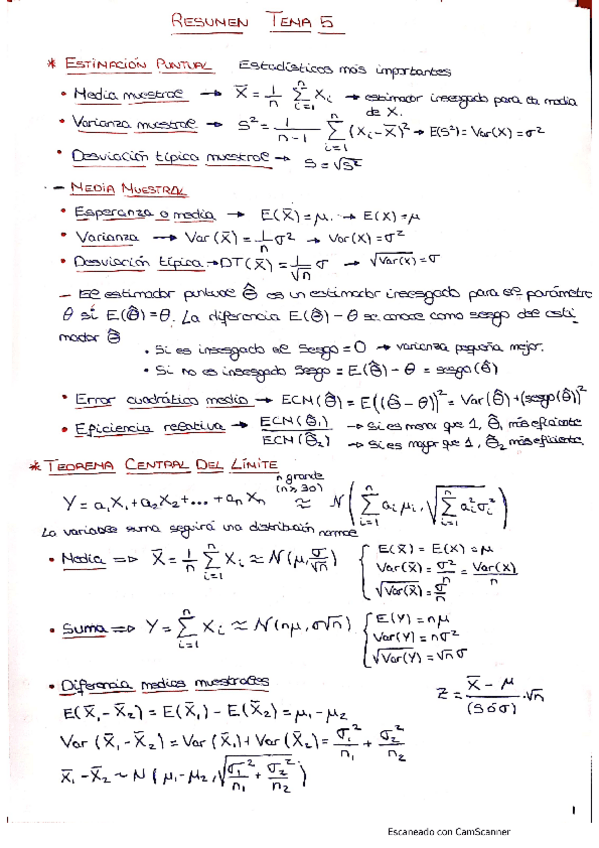 RESUMEN TEMA 5
* ESTIMACIÓN PUNTUAL Estadísticos más importantes
• Media muestral → X̄ = 1/n ∑_{i=1}^{n} Xᵢ → estimador insesgado para la media de X.
• Varianza muestral → S² = 1/(n-1) ∑_{i=1}^{n} (Xᵢ - X̄)² → E(S²) = Var(X) = σ²
• Desviación típica muestral → S = √S²
- MEDIA MUESTRAL
• Esperanza o media → E(X̄) = μ. → E(X) = μ
• Varianza → Var(X̄) = 1/n σ² → Var(X) = σ²
• Desviación típica → DT(X̄) = 1/√n σ → √Var(X) = σ
- El estimador puntual Θ̂ es un estimador insesgado para el parámetro
θ si E(Θ̂) = θ. La diferencia E(Θ̂) - θ se conoce como sesgo del esti
mador Θ̂
• Si es insesgado el Sesgo = 0 → varianza pequeña mejor.
• Si no es insesgado Sesgo = E(Θ̂) - θ = sesgo(Θ̂)
• Error cuadrático medio → ECM(Θ̂) = E((Θ̂ - θ))² = Var(Θ̂) + (sesgo(Θ̂))²
• Eficiencia relativa → ECM(Θ̂₁) / ECM(Θ̂₂) → Si es menor que 1, Θ̂₁ más eficiente
→ Si es mayor que 1, Θ̂₂ más eficiente.
* TEOREMA CENTRAL DEL LÍMITE
n grande
(n ≥ 30)
Y = a₁X₁ + a₂X₂ + ... + aₙXₙ ≈ N(∑_{i=1}^{n} aᵢμᵢ, √(∑_{i=1}^{n} aᵢ²σᵢ²))
La variable suma seguirá una distribución normal
• Media ⇒ X̄ = 1/n ∑_{i=1}^{n} Xᵢ ≈ N(μ, σ/√n) { E(X̄) = E(X) = μ
Var(X̄) = σ²/n = Var(X)/n
√Var(X̄) = σ/n
• Suma ⇒ Y = ∑_{i=1}^{n} Xᵢ ≈ N(nμ, σ√n) { E(Y) = nμ
Var(Y) = nσ²
√Var(Y) = √n σ
• Diferencia medias muestrales
Z = (X̄ - μ)/(S ó σ) · √n
E(X̄₁ - X̄₂) = E(X̄₁) - E(X̄₂) = μ₁ - μ₂
Var(X̄₁ - X̄₂) = Var(X̄₁) + Var(X̄₂) = σ₁²/n₁ + σ₂²/n₂
X̄₁ - X̄₂ ~ N(μ₁ - μ₂, √(σ₁²/n₁ + σ₂²/n₂))
1
Escaneado con CamScanner